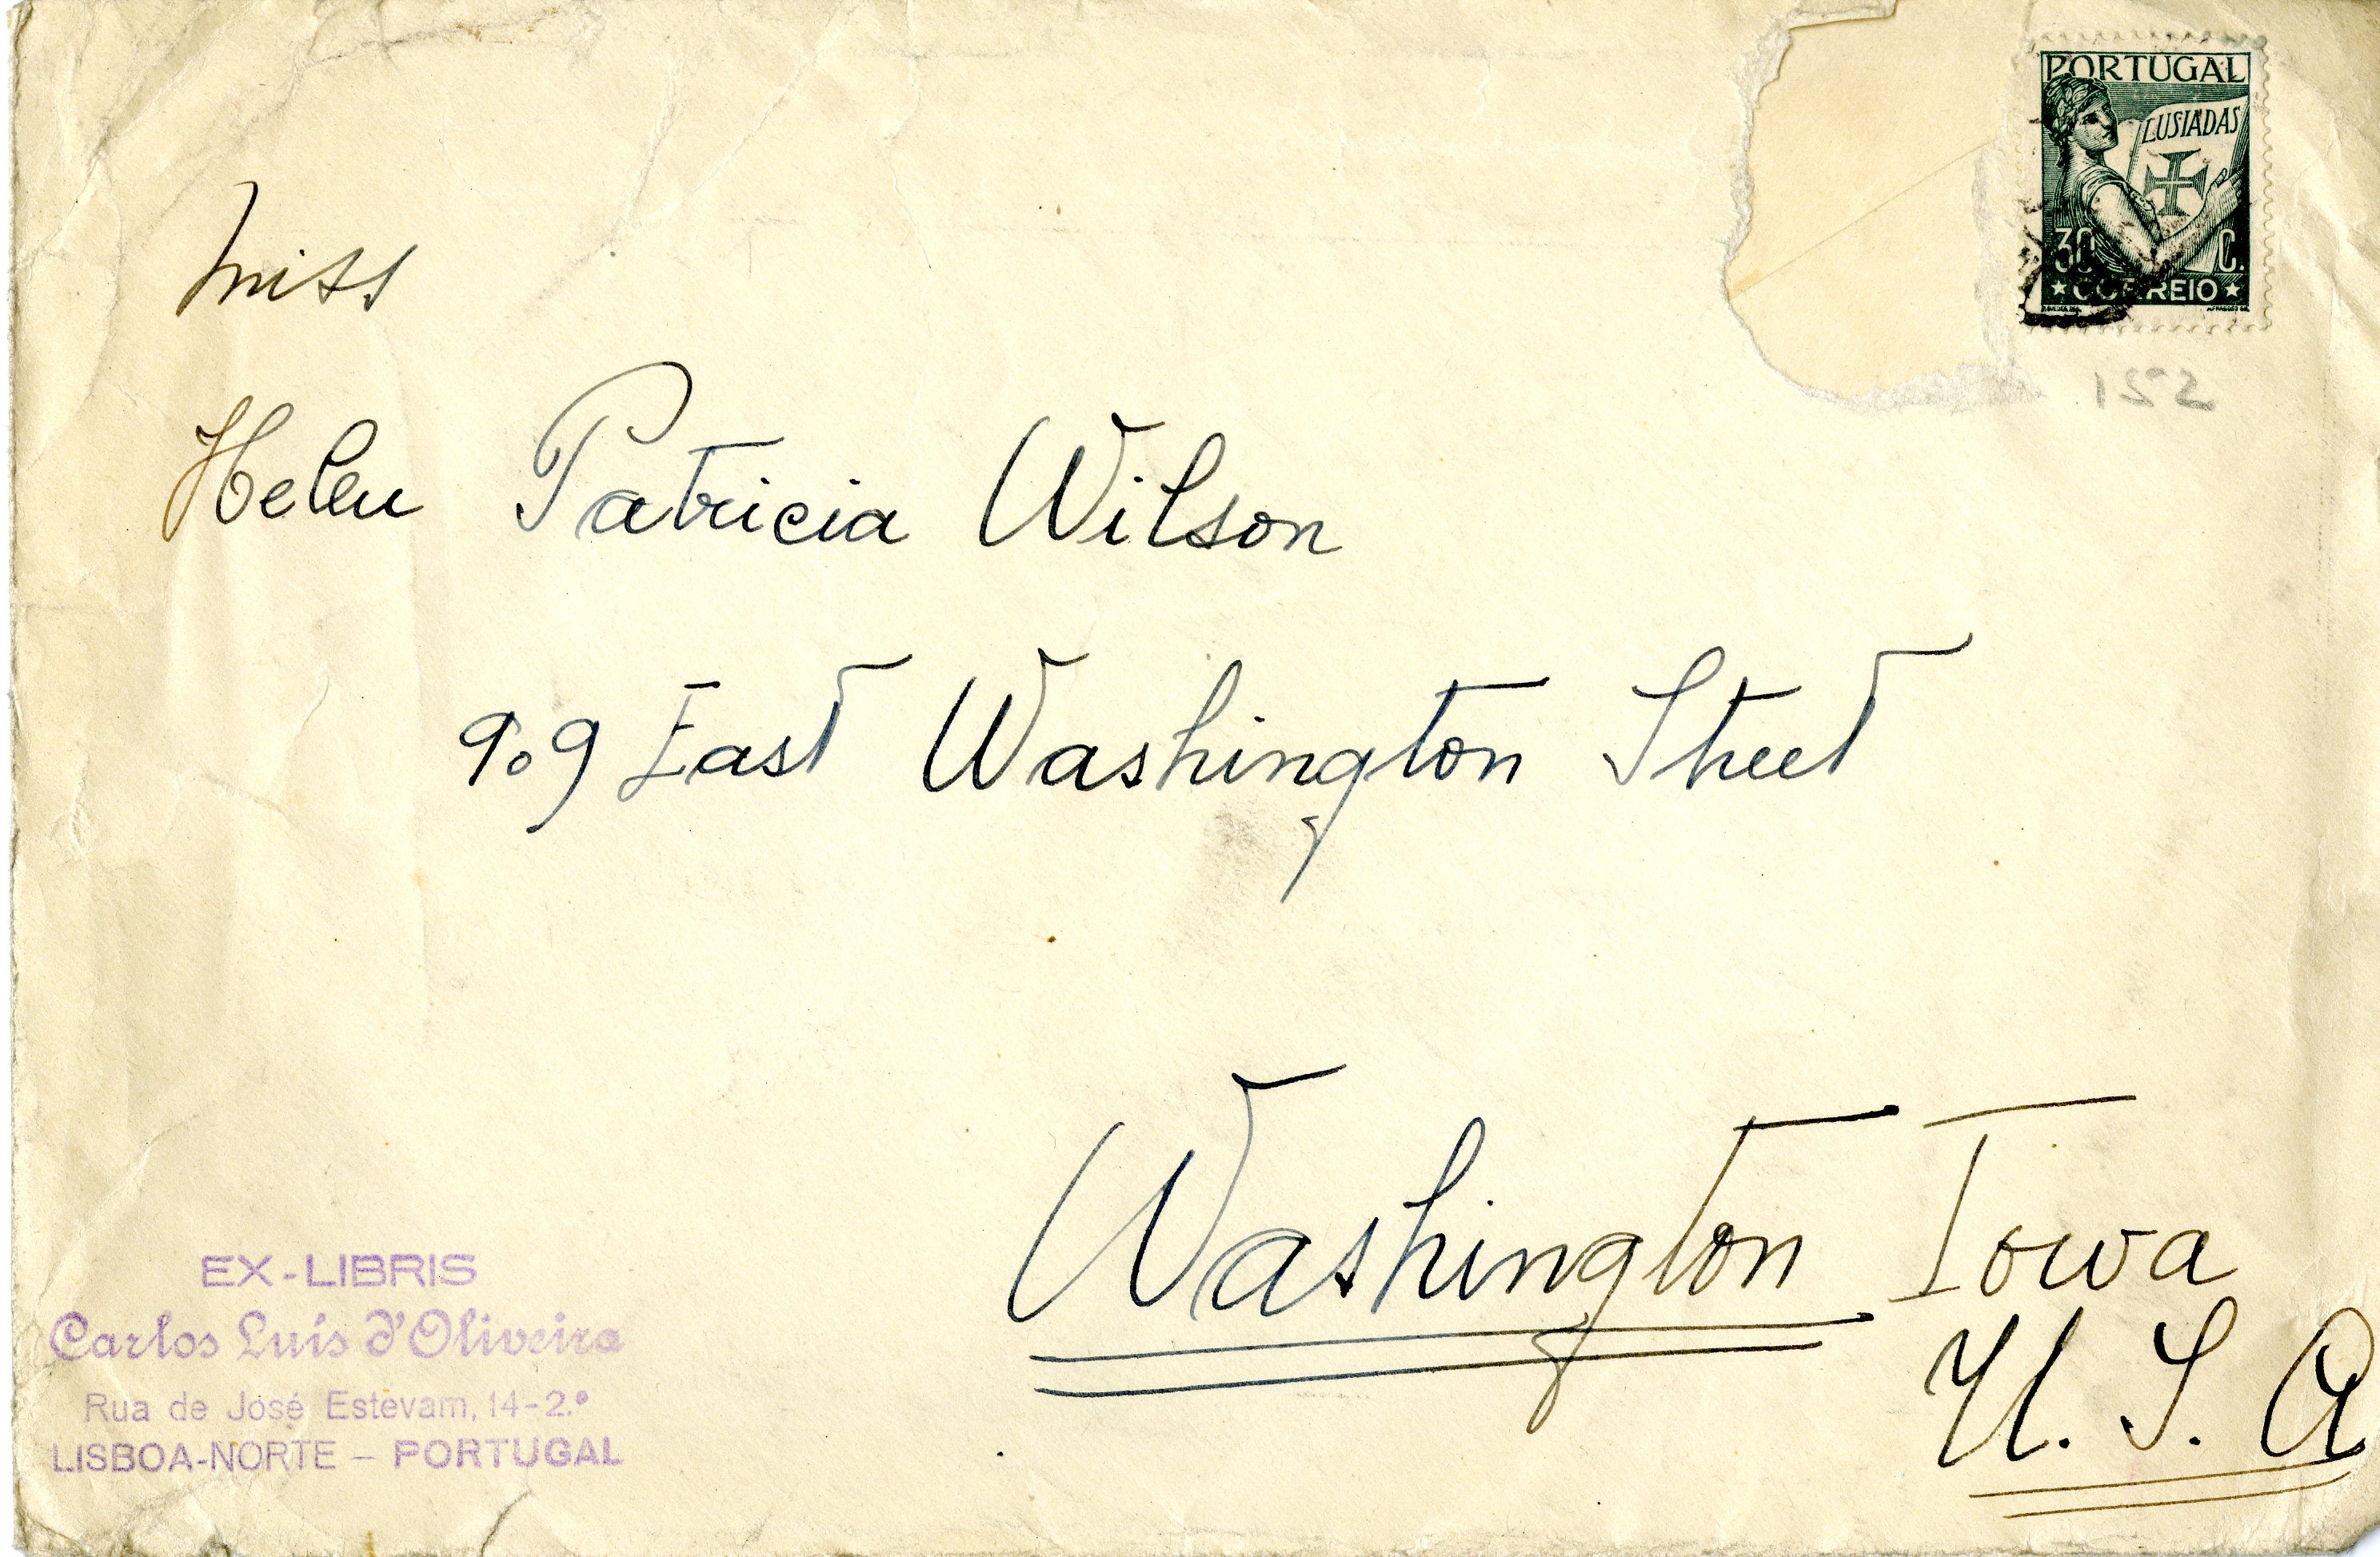 PORTUGAL
LUSIADAS
30 C.
CORREIO
Miss
Helen Patricia Wilson
909 East Washington Street
Washington Iowa
U. S. A
EX-LIBRIS
Carlos Luís d'Oliveira
Rua de José Estevam, 14-2.º
LISBOA-NORTE - PORTUGAL